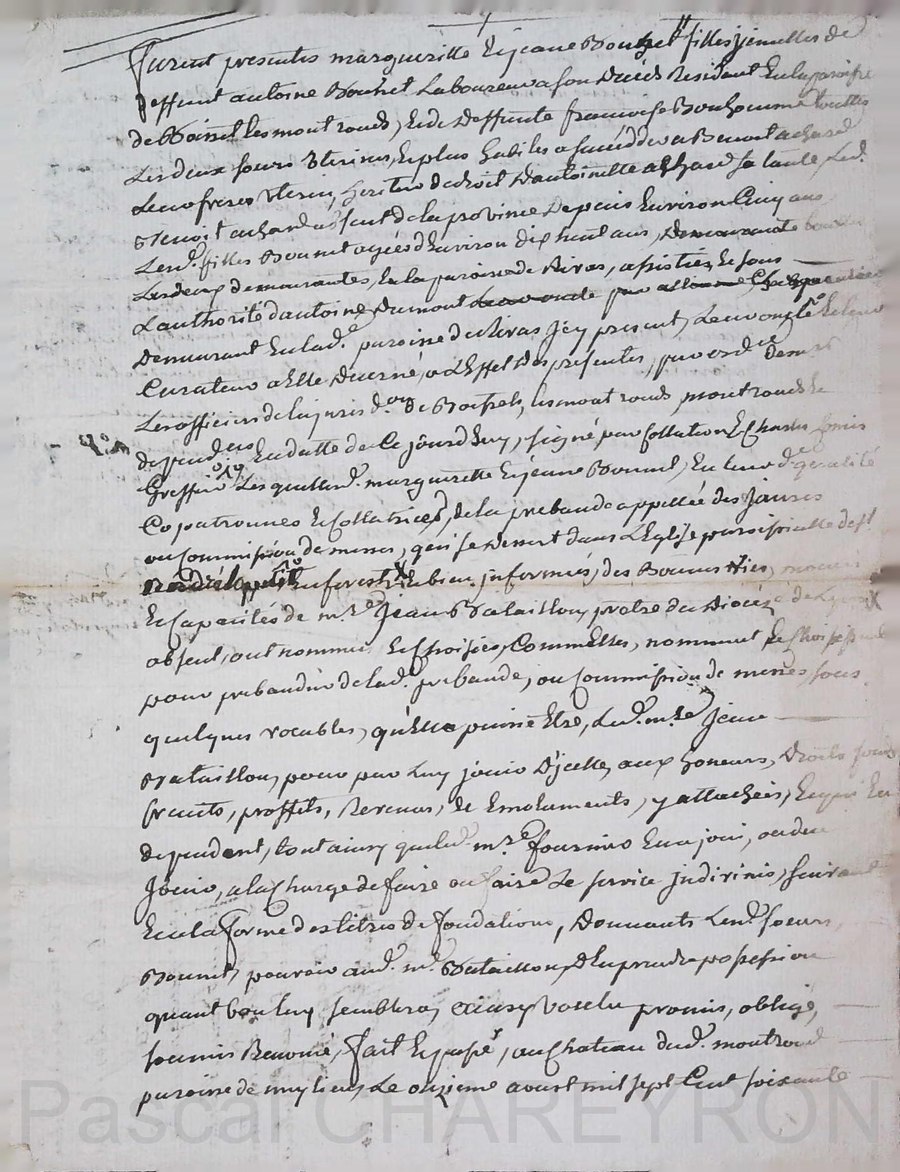 furent presentes margueritte Et jeane Bouchet filles jumelles de
deffunt antoine Bouchet Laboureur a son decéd Residant En la paroisse
de Boisset les mont rond, Et de Deffunte francoise Bonhomme
Les deux sœurs Uterines, Et plus habiles a succedder a Benoit achard
Leur frere Uterin, heritier de droit D'antoinette achard sa tante, Led.
Benoit achard absent de la province Depuis Environ Cinq ans,
Lesd. filles agées d'Environ dix huit ans,
Les deux demeurantes, En la paroisse de Rivas, assistées, Et sous
L'authorité d'antoine Dumont
Demeurant En lad.e paroisse de Rivas, jcy present,
Curateur a Elle decerné, a L'Effet des presentes, par ord.ce
Les officiers de la juris.d.on de Boisset, les mont rond, montrond
dependces En datte de Ce jourd'huy, signé par Collation
Greffier, Lesquelles d. margueritte Et jeane En leur d.e qualité
Copatronnes Et Collatrices, de la prebande appellée des jaures
ou Commission de messes, qui se dessert dans L'Eglise paroissialle de St
En forest, Et bien jnformés, des Bonnes Vies, mœurs
Et Capacités de m.re jean Bataillon, prêtre du Diocéze de Lyon
absent, ont nommé, Et choisies, Comme Elles, nomment Et choisissent
pour prebandier de lad. prebande, ou Commission de messes, sous
quelques vocables, qu'Elle puisse Etre, Led. m.re jean
Bataillon, pour par Luy jouir d'jcelle, aux honeurs, Droits
fruits, proffits, Revenus, Et Emoluments, y attachées, Et qui En
dependent, tout ainsy que led. m.re fournier En a joui, ou deu
jouir, a la Charge de faire ou faire Le service jndivinis, suivant
Et en la forme des titres de fondations, Donnants Lesd. sœurs
pouvoir aud. m.re Bataillon, d'En prendre possession
quant bon luy semblera, ainsy Voulu promis, obligé,
soumis Renoncé, fait Et passé, au Chateau dud. montrond
paroisse de meylieu, Le onzieme aoust mil sept Cent soixante
Pascal CHAREYRON